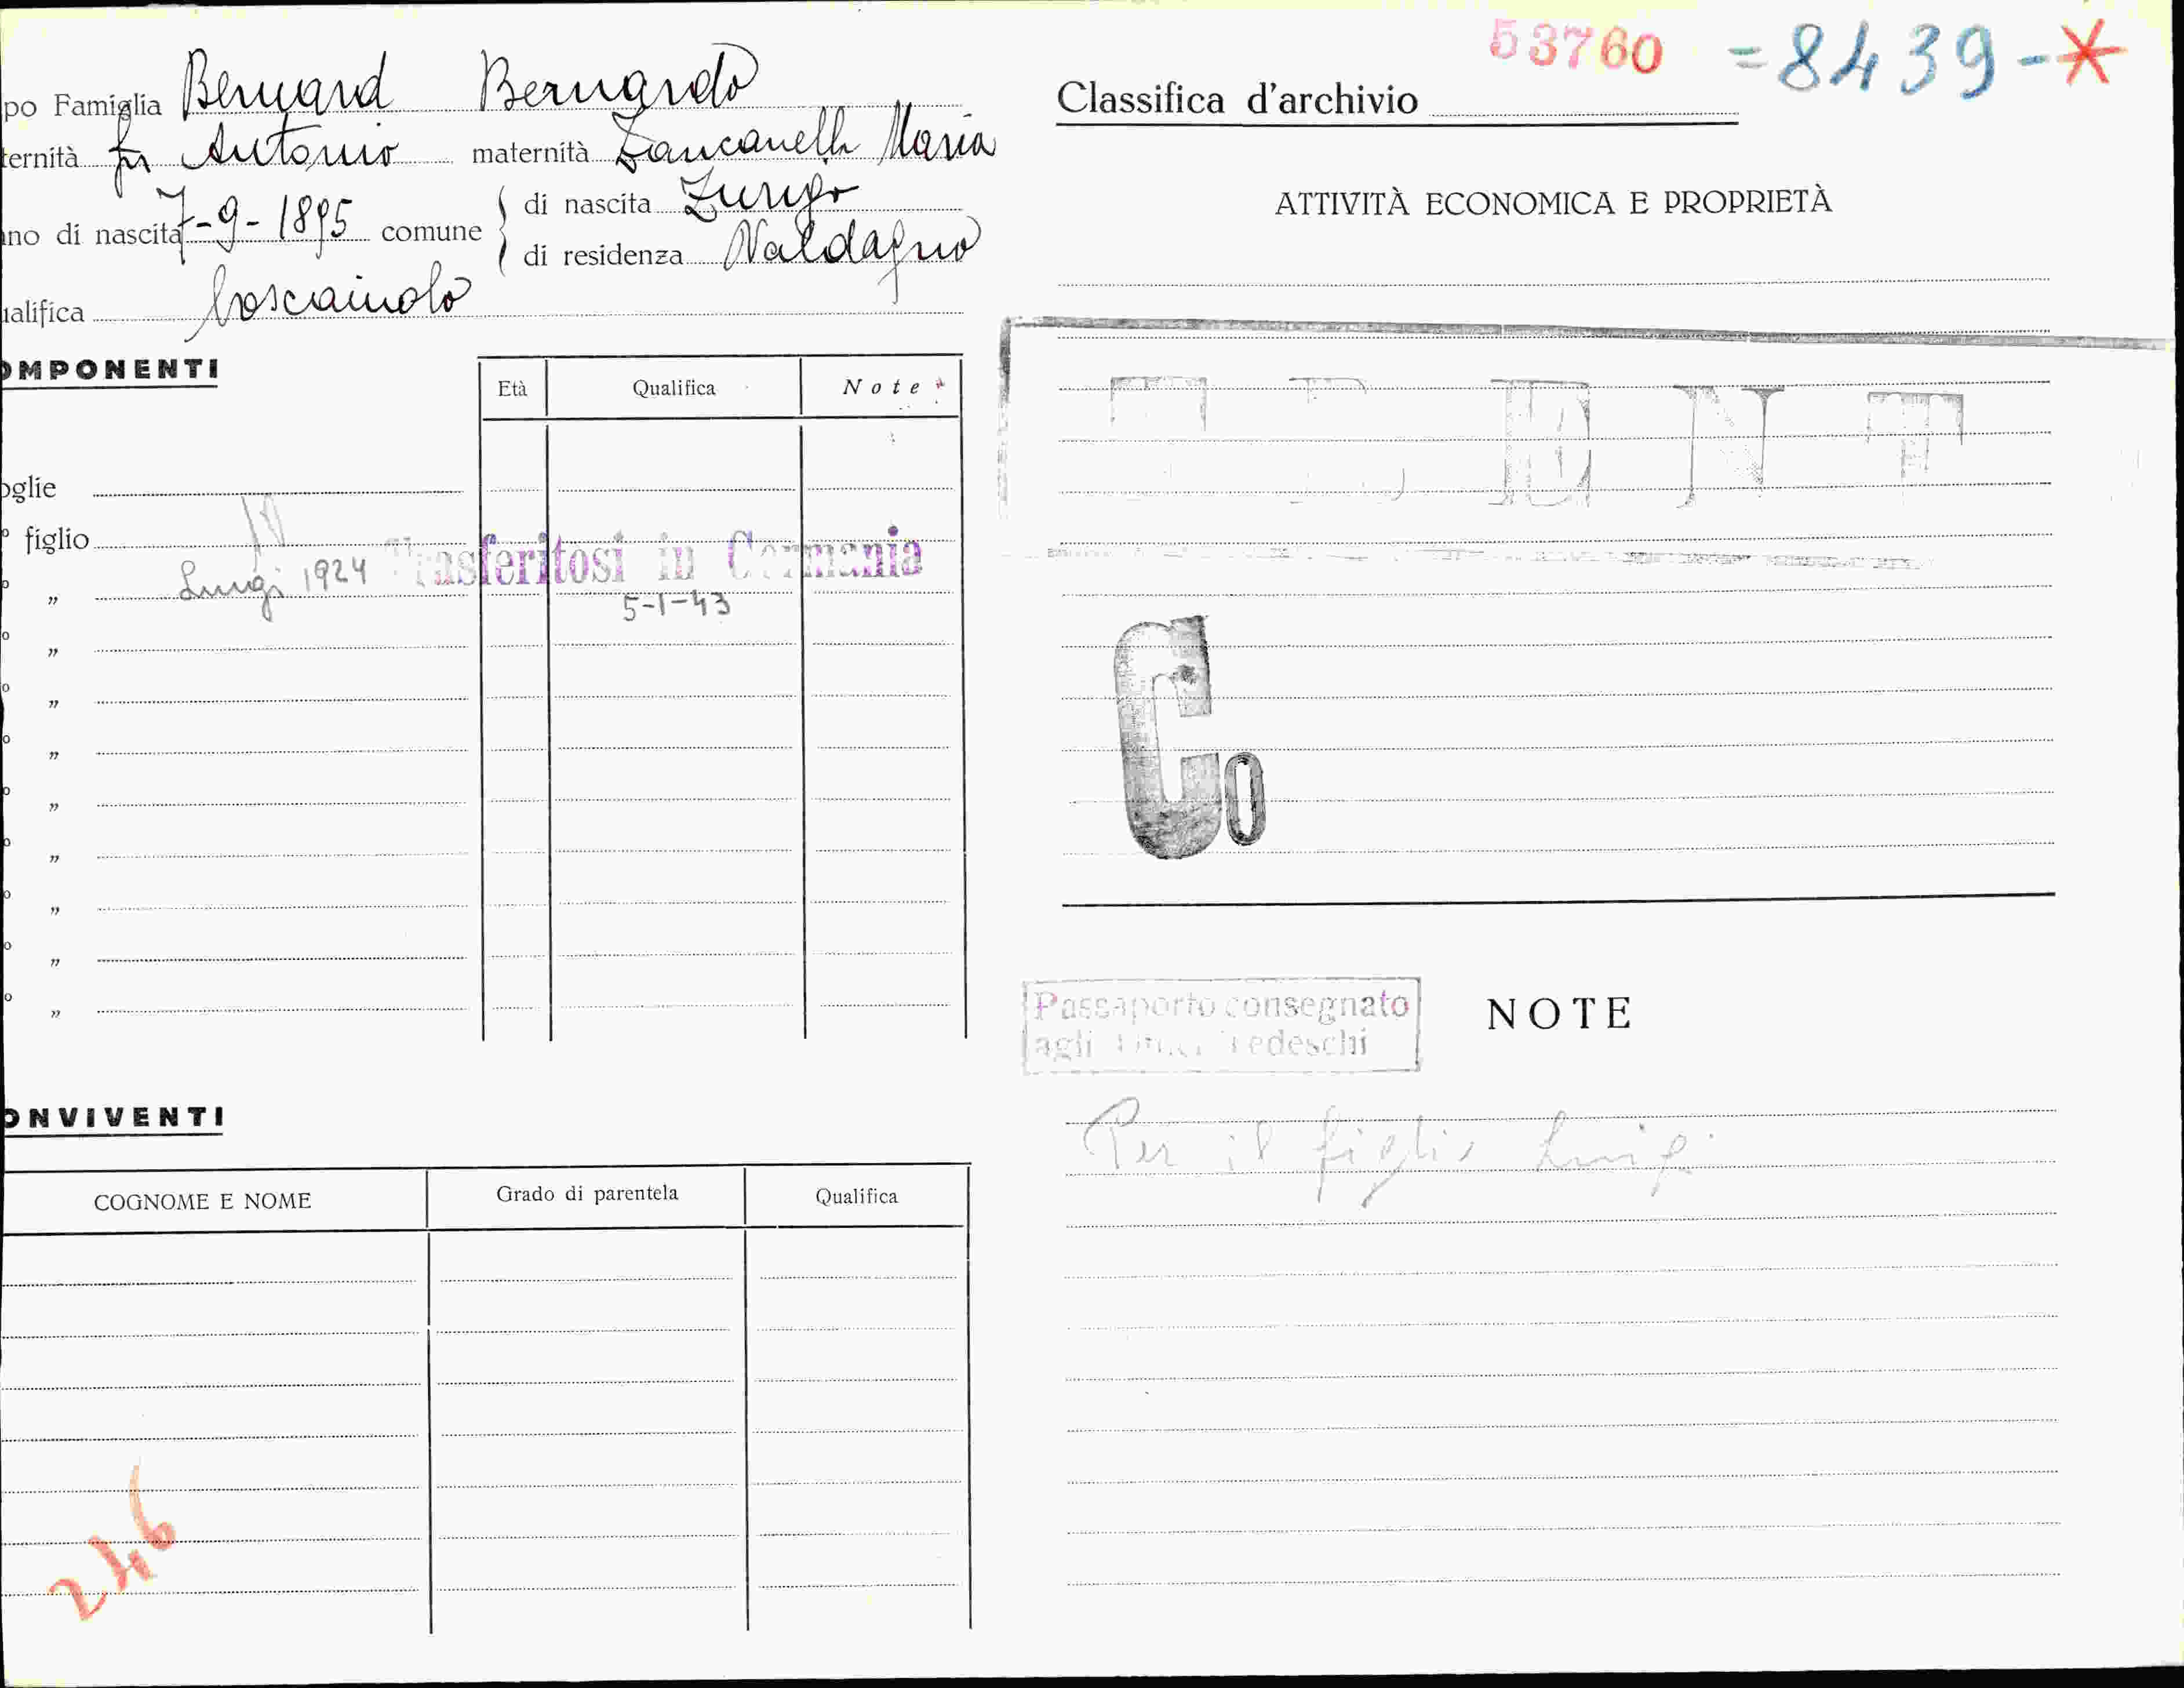 po Famiglia Bernard Bernardo
ternità fu Antonio maternità Zancanella Maria
no di nascita 7-9-1895 comune
di nascita Zurigo
di residenza Valdagno
ualifica boscaiuolo
OMPONENTI
Età Qualifica Note
oglie
o figlio
Luigi 1924 Trasferitosi in Germania
o „
5-1-43
o „
o „
o „
o „
o „
o „
o „
o „
ONVIVENTI
COGNOME E NOME Grado di parentela Qualifica
246
53760 =8439-*
Classifica d'archivio
ATTIVITÀ ECONOMICA E PROPRIETÀ
Co
Passaporto consegnato
agli Uffici Tedeschi
NOTE
Per il figlio Luigi